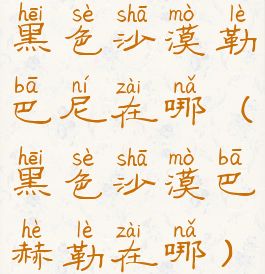 hēi sè shā mò lè
黑色沙漠勒
bā ní zài nǎ
巴尼在哪（
hēi sè shā mò bā
黑色沙漠巴
hè lè zài nǎ
赫勒在哪）